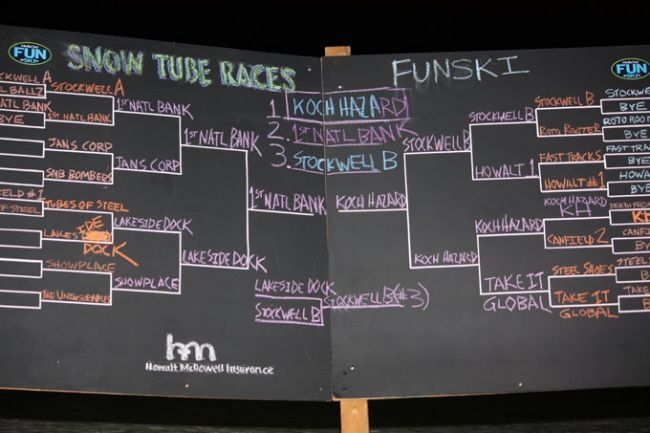 FUN
SNOW TUBE RACES
STOCKWELL A
BALLZ
STOCKWELL A
NATL BANK
BYE
1ST NATL BANK
1ST NATL BANK
JANS CORP
SNB BOMBERS
JANS CORP
1ST NATL BANK
#1
OF STEEL
TUBES OF STEEL
LAKESIDE
DOCK
LAKESIDE DOCK
SHOWPLACE
THE UNINSURABLES
SHOWPLACE
LAKESIDE DOCK
1ST NATL BANK
hm
Howalt McDowell Insurance
1. KOCH HAZARD
2. 1ST NATL BANK
3. STOCKWELL B
LAKESIDE DOCK
STOCKWELL B
STOCKWELL B (#3)
FUNSKI
FUN
KOCH HAZARD
STOCKWELL B
KOCH HAZARD
STOCKWELL B
HOWALT 1
KOCH HAZARD
TAKE IT
GLOBAL
STOCKWELL B
ROTO ROOTER
FAST TRACKS
HOWALT #1
KOCH HAZARD
KH
CANFIELD 2
STEEL SHOES
TAKE IT
GLOBAL
BYE
ROTO ROO
BYE
FAST TRAC
BYE
HOWA
BYE
DEATH FROM
KH
CANFI
BY
STEEL
BY
TAKE
BY